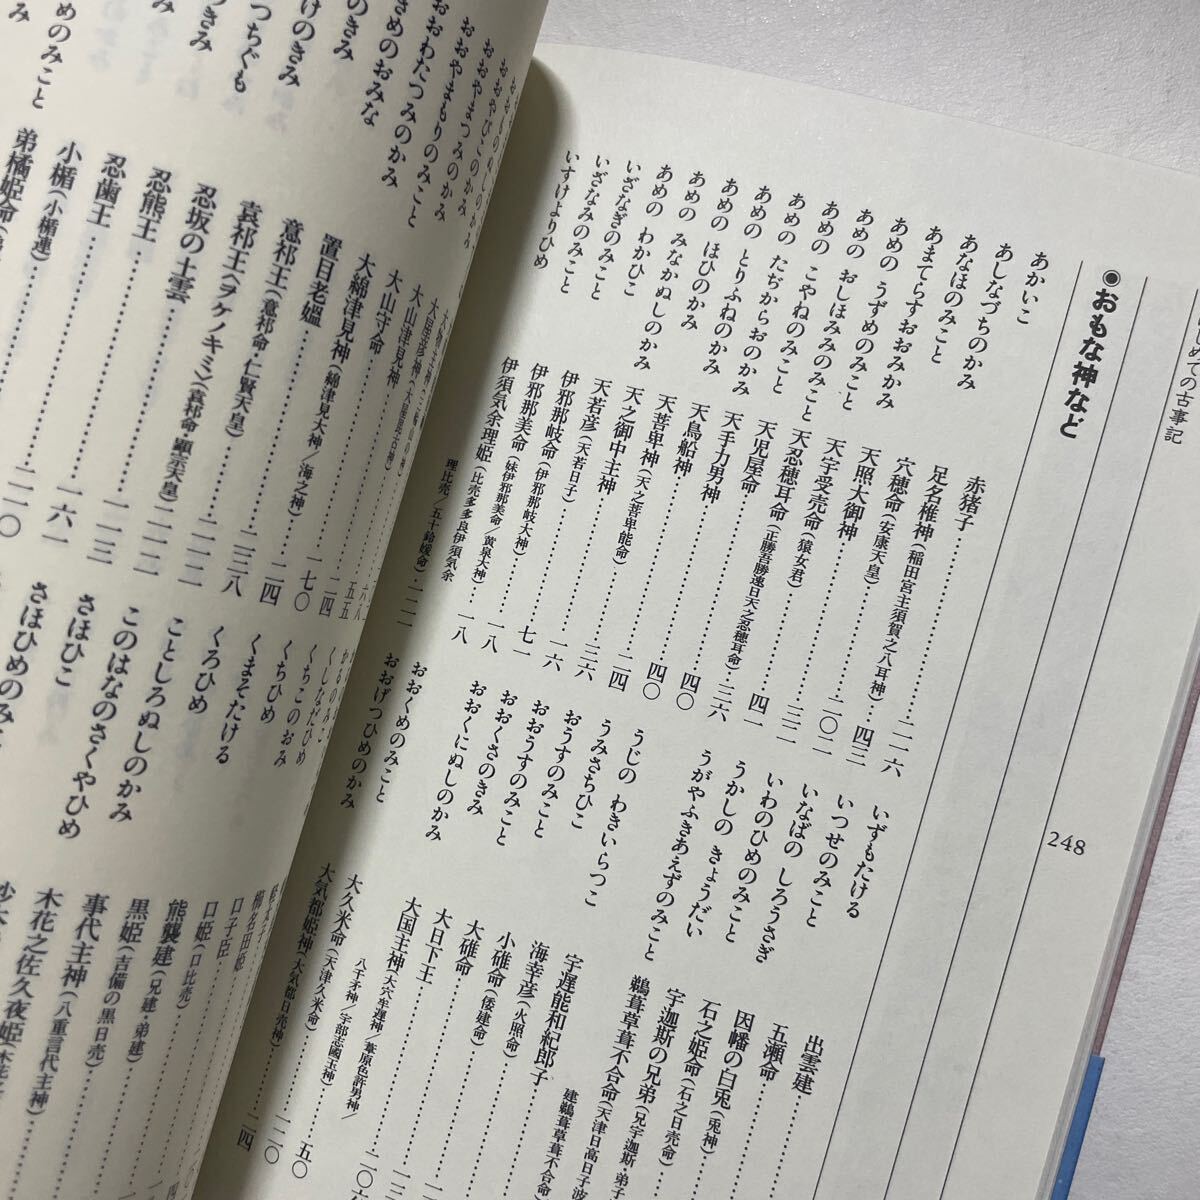 じめての古事記
248
◉おもな神など
あかいこ 赤猪子……二一六
あしなづちのかみ 足名椎神(稲田宮主須賀之八耳神)…四三
あなほのみこと 穴穂命(安康天皇)……二〇二
あまてらすおおみかみ 天照大御神……三二
あめの うずめのみこと 天宇受売命(猿女君)……四一
あめの おしほみみのみこと 天忍穂耳命(正勝吾勝速日天之忍穂耳命)…三六
あめの こやねのみこと 天児屋命……四〇
あめの たぢからおのかみ 天手力男神……四〇
あめの とりふねのかみ 天鳥船神
あめの ほひのかみ 天菩卑神(天之菩卑能命)……三六
あめの みなかぬしのかみ 天之御中主神……一六
あめの わかひこ 天若彦(天若日子)……七一
いざなぎのみこと 伊邪那岐命(伊邪那岐大神)……一八
いざなみのみこと 伊邪那美命(妹伊邪那美命/黄泉大神)…一八
いすけよりひめ 伊須気余理姫(比売多多良伊須気余
理比売/五十鈴媛命)…一二一
いずもたける 出雲建
いつせのみこと 五瀬命
いなばの しろうさぎ 因幡の白兎(兎神)
いわのひめのみこと 石之姫命(石之日売命)
うかしの きょうだい 宇迦斯の兄弟(兄宇迦斯・弟
うがやふきあえずのみこと 鵜葺草葺不合命(天津日高日子波
建鵜葺草葺不合命)
うじの わきいらつこ 宇遅能和紀郎子
うみさちひこ 海幸彦(火照命)
おうすのみこと 小碓命(倭建命)
おおうすのみこと 大碓命
おおくさのきみ 大日下王
おおくにぬしのかみ 大国主神(大穴牟遅神/葦原色許男神/
八千矛神/宇都志國玉神)
おおくめのみこと 大久米命(天津久米命)
おおげつひめのかみ 大気都姫神(大気都日売神)……五〇
おおやびこのかみ 大屋彦神(大屋毘古神)
おおやまつみのかみ 大山津見神
おおやまもりのみこと 大山守命
おおわたつみのかみ 大綿津見神(綿津見大神/海之神)
きめのおみな 置目老媼
けのきみ 意祁王(意祁命・仁賢天皇)
袁祁王(ヲケノキミ)(袁祁命・顕宗天皇)
つちぐも 忍坂の土雲
忍熊王
忍歯王
小楯(小楯連)
めのみこと 弟橘姫命
くしなだひめ 櫛名田姫
くちこのおみ 口子臣
くちひめ 口姫(口比売)
くまそたける 熊襲建(兄建・弟建)
くろひめ 黒姫(吉備の黒日売)
ことしろぬしのかみ 事代主神(八重言代主神)
このはなのさくやひめ 木花之佐久夜姫
さほひこ
さほひめのみ